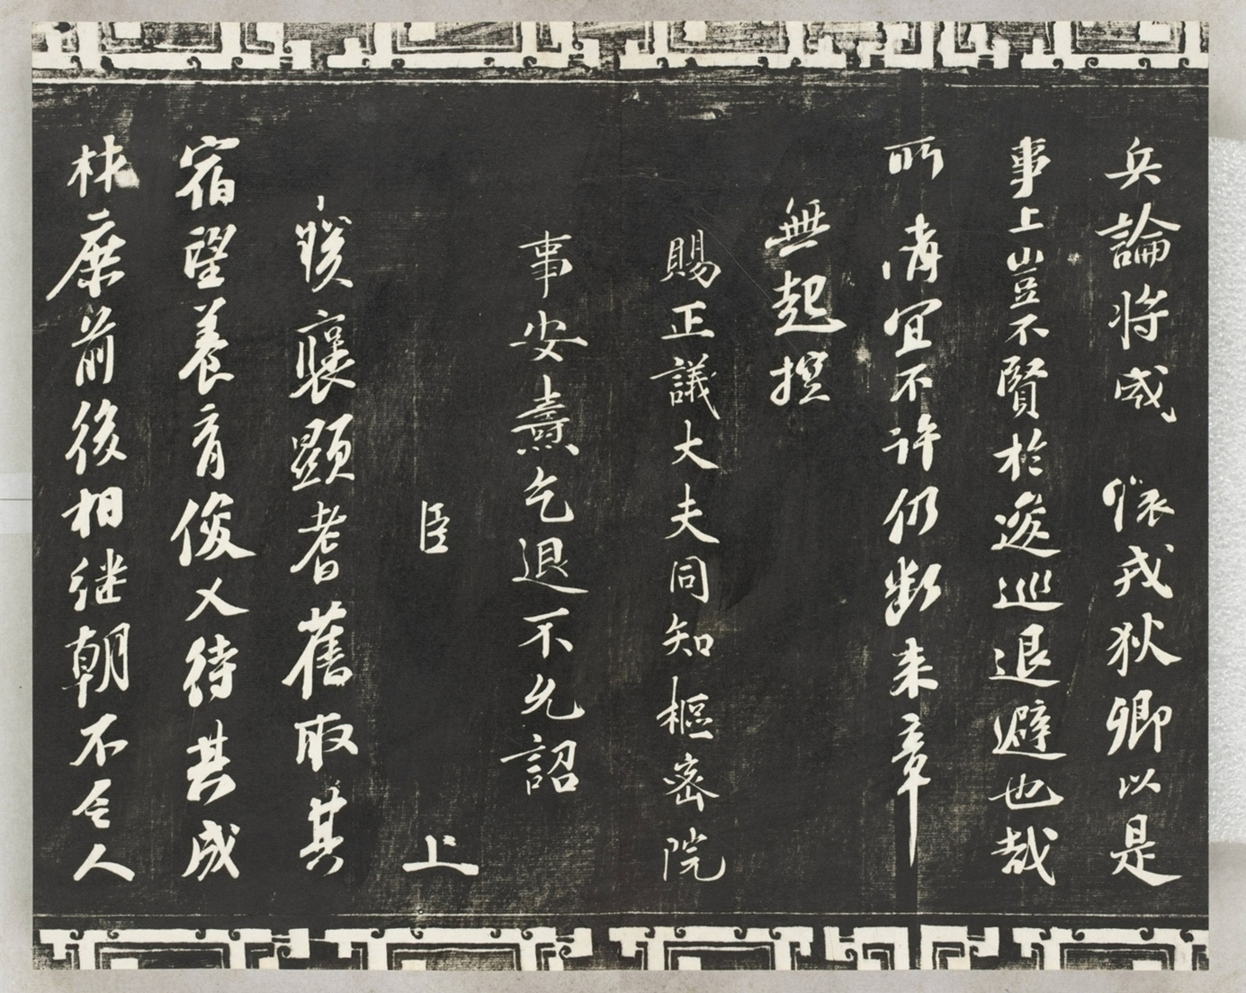 兵論將威懷戎狄卿以是
事上豈不賢於逡巡退避也哉
所請宜不許仍断来章
無起撰
賜正議大夫同知樞密院
事安燾乞退不允詔
臣 上
朕褒顯耆舊取其
宿望養育俊乂待其成
材庶前後相継朝不乏人